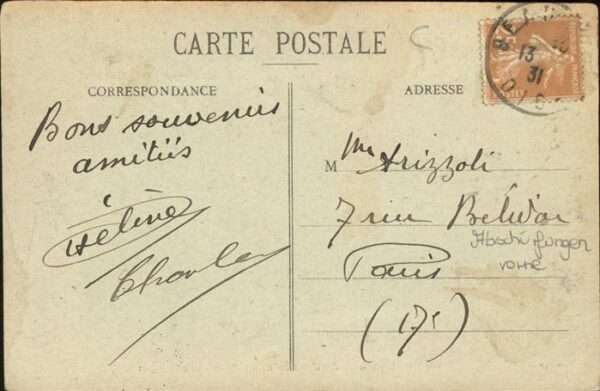 CARTE POSTALE
CORRESPONDANCE
ADRESSE
Bons souvenirs
amitiés
Hélène
Charles
M me Arizzoli
7 rue Bélidor
Paris
(17e)
Abschürfungen
vorne
13
31